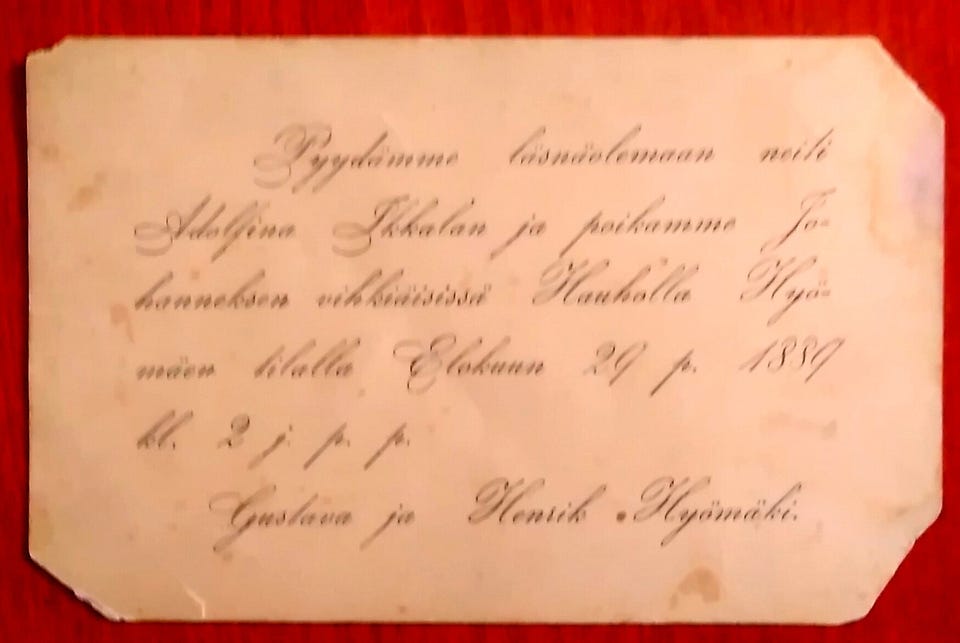 Pyydämme läsnäolemaan neiti
Adolfina Ikkalan ja poikamme Jo-
hanneksen vihkiäisissä Hauholla Hyö-
mäen tilalla Elokuun 29 p. 1889
kl. 2 j. p. p.
Gustava ja Henrik Hyömäki.